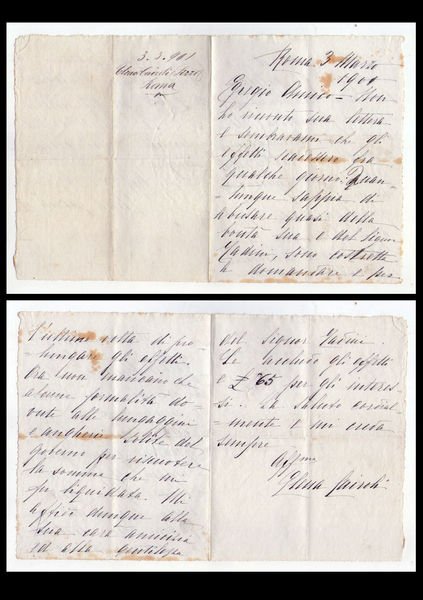 3. 3. 901
Elena Cairoli Sizzo
Roma
Roma 3 Marzo
1901
Egregio Amico — Non
ho ricevuto sua lettera
e sembravami che gli
effetti scadessero fra
qualche giorno. Quan-
tunque sappia di
abusare quasi della
bontà sua e del Signor
Tadini, sono costretta
a domandare e per
l'ultima volta di pro-
lungare gli effetti.
Ora non mancano che
alcune formalità do-
vute alle lungaggini
e angherie solite del
governo per riscuotere
la somma che mi
fu liquidata. Mi
affido dunque alla
sua cara amicizia
ed alla gentilezza
del Signor Tadini.
Le accludo gli effetti
e £ 65 per gli interes-
si. La saluto cordial-
mente e mi creda
sempre
Aff.ma
Elena Cairoli